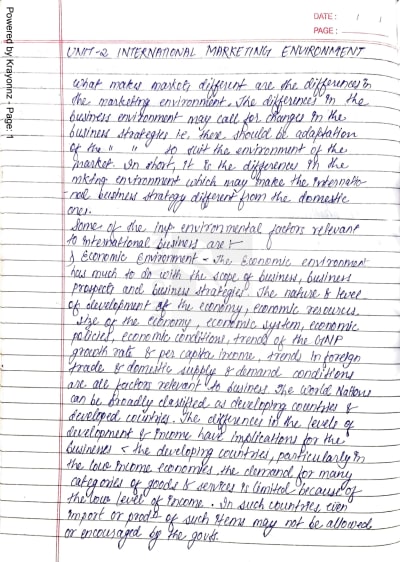 DATE: / /
PAGE:
UNIT-2 INTERNATIONAL MARKETING ENVIRONMENT
What makes markets different are the differences in
the marketing environment. The differences in the
business environment may call for changes in the
business strategies i.e. there should be adaptation
of the " " to suit the environment of the
market. In short, it is the differences in the
mkting environment which may make the internatio-
-nal business strategy different from the domestic
ones.
Some of the imp environmental factors relevant
to international business are:-
1) Economic Environment - The Economic environment
has much to do with the scope of business, business
prospects and business strategies. The nature & level
of development of the economy, economic resources,
size of the economy, economic system, economic
policies, economic conditions, trends of the GNP
growth rate & per capita income, trends in foreign
trade & domestic supply & demand conditions
are all factors relevant to business. The World Nations
can be broadly classified as developing countries &
developed countries. The differences in the levels of
development & Income have implications for the
business < the developing countries, particularly in
the low income economies the demand for many
categories of goods & services is limited because of
the low level of income. In such countries, even
import or prodn of such items may not be allowed
or encouraged by the govts.
Powered by Krayonnz - Page: 1